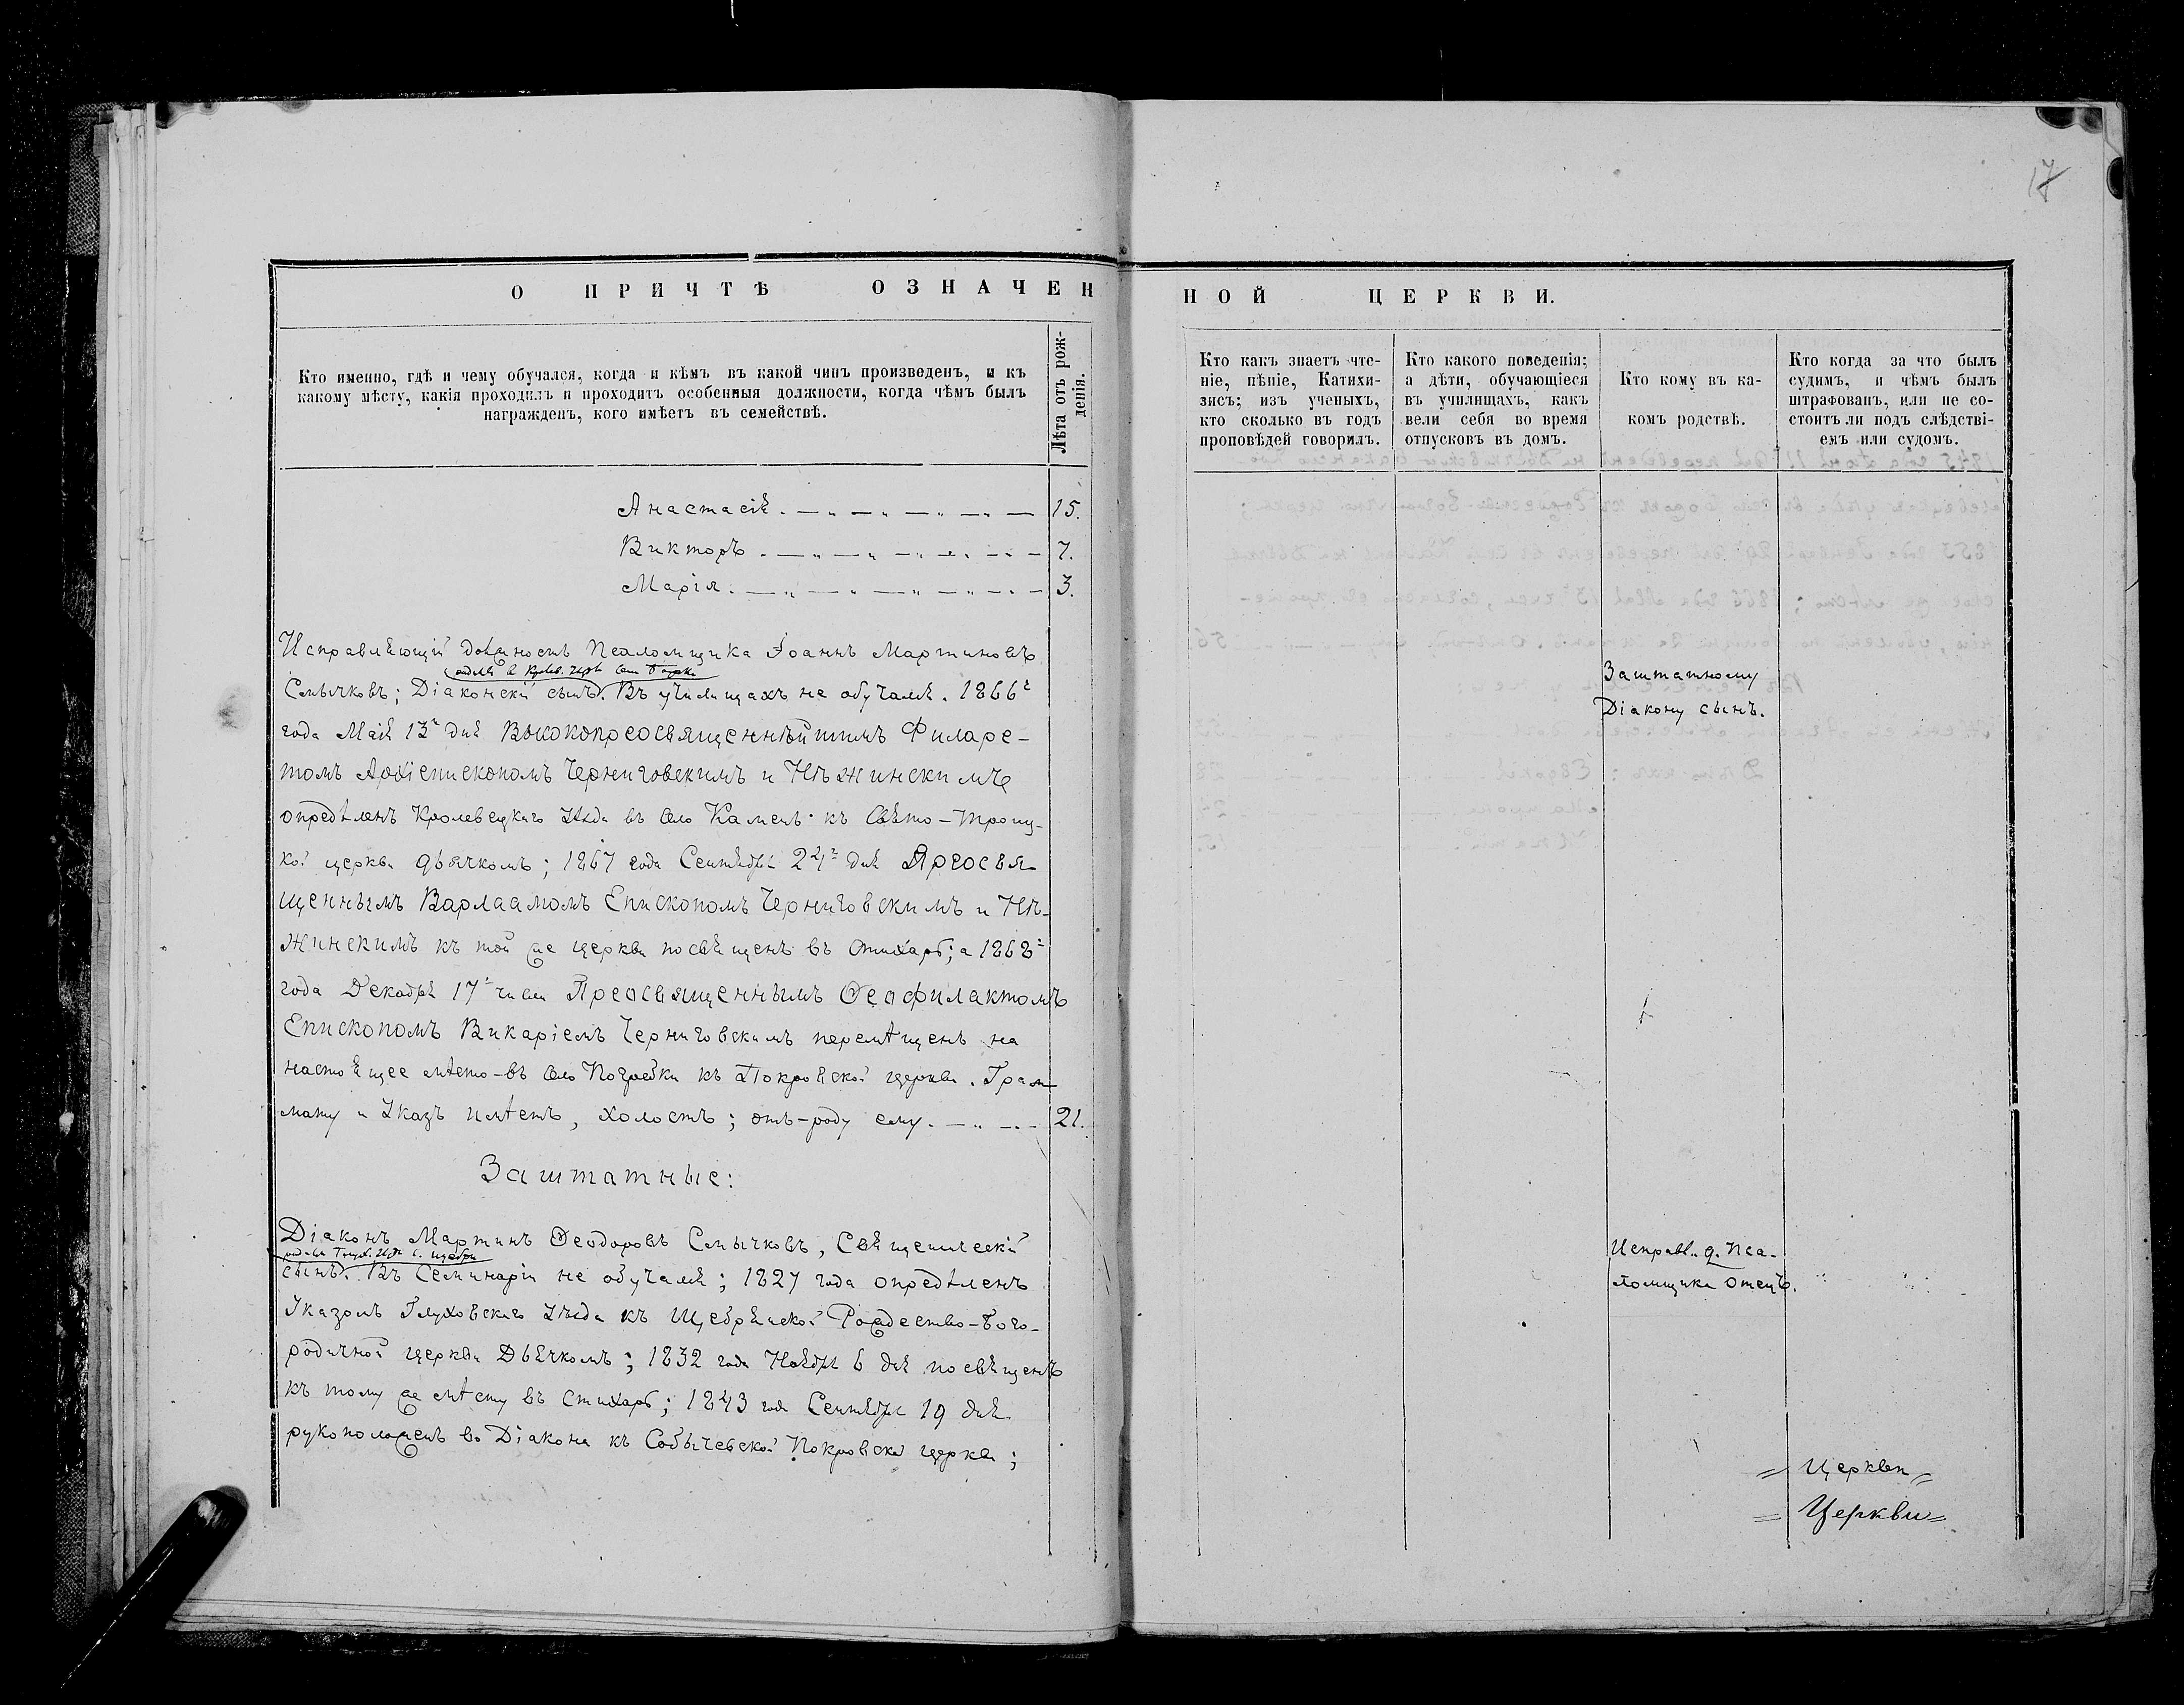 17
О ПРИЧТѢ ОЗНАЧЕН
НОЙ ЦЕРКВИ.
Кто именно, гдѣ и чему обучался, когда и кѣмъ въ какой чинъ произведенъ, и къ
какому мѣсту, какія проходилъ и проходитъ особенныя должности, когда чѣмъ былъ
награжденъ, кого имѣетъ въ семействѣ.
Лѣта отъ рож-
денія.
Кто какъ знаетъ чте-
ніе, пѣніе, Катихи-
зисъ; изъ ученыхъ,
кто сколько въ годъ
проповѣдей говорилъ.
Кто какого поведенія;
а дѣти, обучающіеся
въ училищахъ, какъ
вели себя во время
отпусковъ въ домъ.
Кто кому въ ка-
комъ родствѣ.
Кто когда за что былъ
судимъ, и чѣмъ былъ
штрафованъ, или не со-
стоитъ ли подъ слѣдстві-
емъ или судомъ.
Анастасія. 15.
Викторъ. 7.
Марія. 3.
Исправляющій должность Псаломщика Іоаннъ Мартиновъ
Смычковъ; Діаконскій сынъ. Въ училищахъ не обучался. 1866г
года Маія 13г дня Высокопреосвященнѣйшимъ Филаре-
томъ Архіепископомъ Черниговскимъ и Нѣжинскимъ
опредѣленъ Кролевецкаго Уѣзда въ село Камень къ Свято-Троиц-
кой церкви дьячкомъ; 1867 года Сентября 24г дня Преосвя-
щеннымъ Варлаамомъ Епископомъ Черниговскимъ и Нѣ-
жинскимъ къ той же церкви посвященъ въ стихарь; а 1868г
года Декабря 17г числа Преосвященнымъ Ѳеофилактомъ
Епископомъ Викаріемъ Черниговскимъ перемѣщенъ на
настоящее мѣсто - въ село Погребки къ Покровской церкви. Грам-
мату и Указъ имѣетъ, холостъ; отъ-роду ему. 21.
Заштатному
Діакону сынъ.
Заштатные:
Діаконъ Мартинъ Ѳеодоровъ Смычковъ, Священическій
сынъ. Въ Семинаріи не обучался; 1827 года опредѣленъ
Указомъ Глуховскаго Уѣзда къ Щебрянской Рождество-Бого-
родичной церкви Дьячкомъ; 1832 года Ноября 6 дня посвященъ
къ тому же мѣсту въ стихарь; 1843 года Сентября 19 дня
рукоположенъ во Діакона къ Собычевской Покровской церкви;
Исправл. д. Пса-
ломщика отецъ.
= Церкви =
= Церкви =